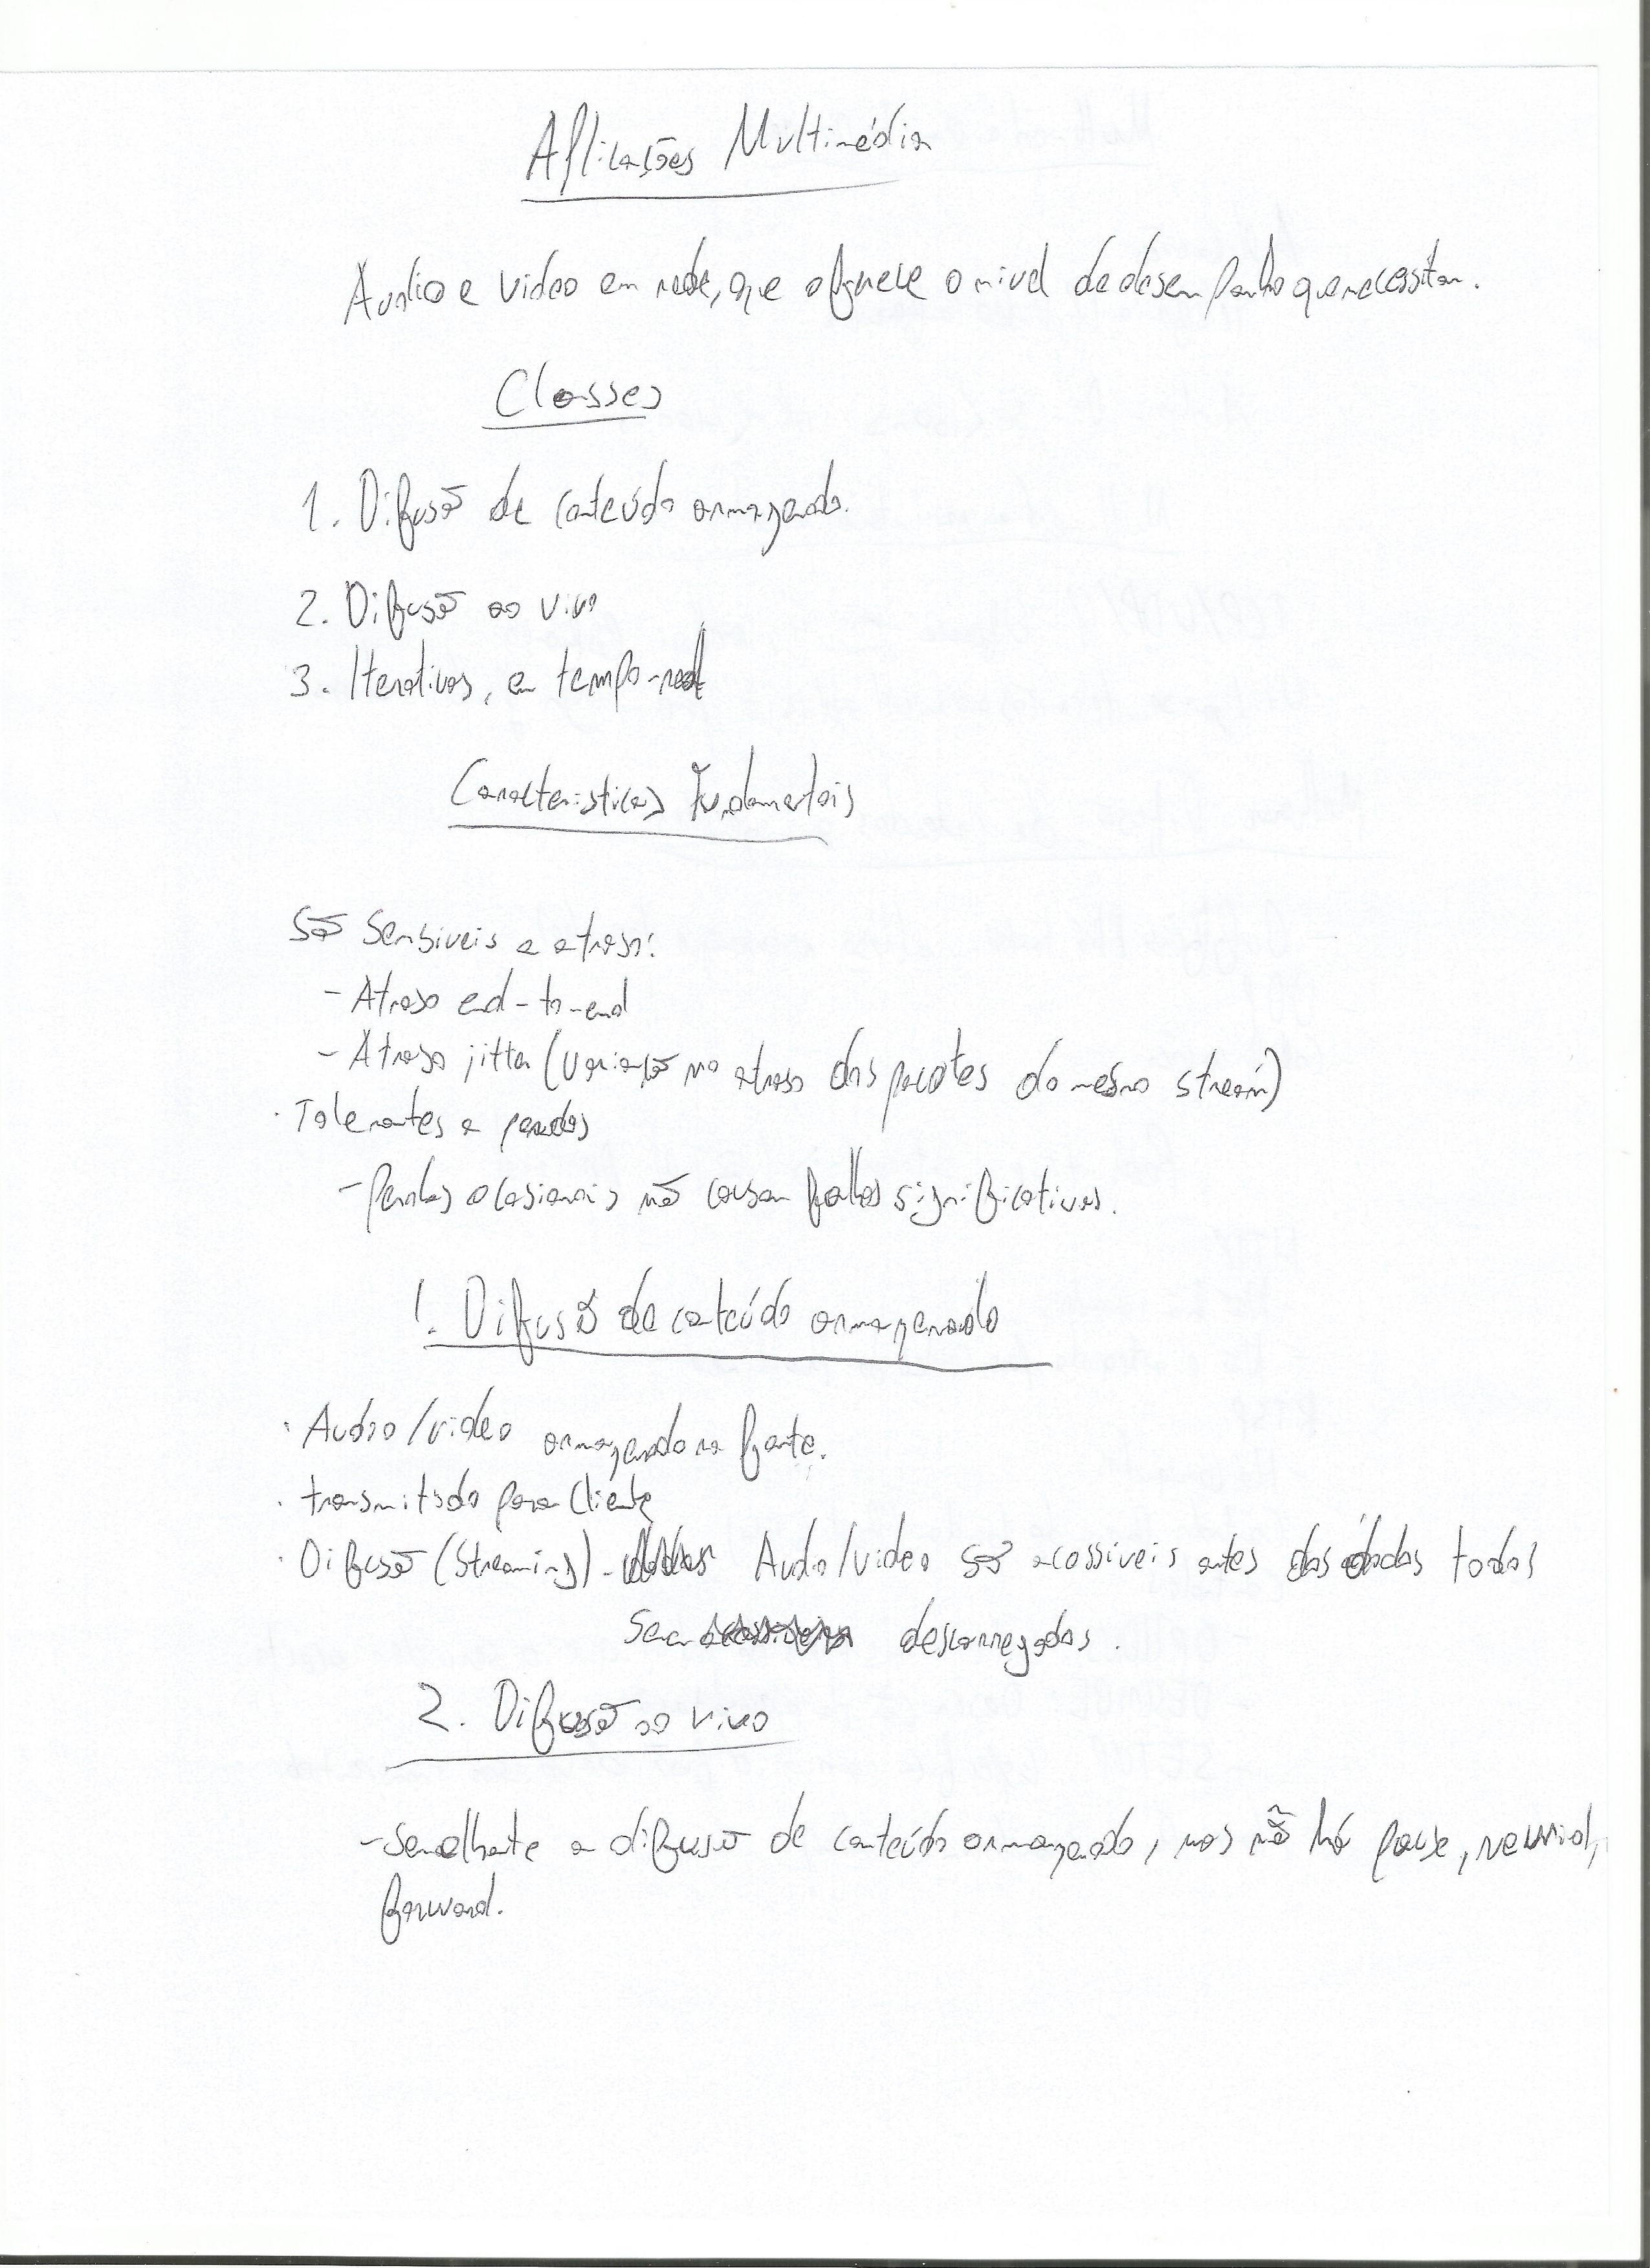 Aplicações Multimédia
Audio e video em rede, que oferece o nivel de desempenho que necessitam.
Classes
1. Difusão de conteúdo armazenado.
2. Difusão ao vivo
3. Iterativas, em tempo-real
Caracteristicas Fundamentais
São Sensiveis a atraso:
- Atraso end-to-end
- Atraso jitter (variação no atraso dos pacotes do mesmo stream)
· Tolerantes a perdas
- Perdas ocasionais não causam falhas significativas.
1. Difusão de conteúdo armazenado
· Audio/video armazenado na fonte.
· transmitido para Cliente
· Difusão (Streaming) - Audio/video são acossiveis antes dos dados todos
Serem descarregados.
2. Difusão ao vivo
- Semelhante a difusão de conteúdo armazenado, mas não há pause, rewind,
forward.